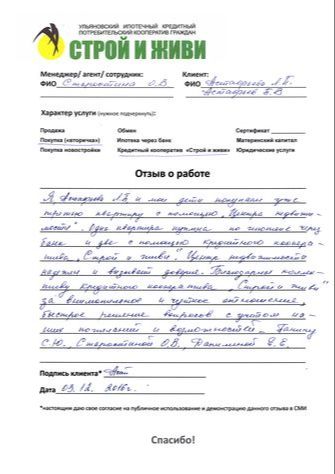 УЛЬЯНОВСКИЙ ИПОТЕЧНЫЙ КРЕДИТНЫЙ
ПОТРЕБИТЕЛЬСКИЙ КООПЕРАТИВ ГРАЖДАН
СТРОЙ И ЖИВИ
Менеджер/ агент/ сотрудник: Клиент:
ФИО Старостина О.В. ФИО Астафьева Л.Б.
Астафьев Б.В
Характер услуги (нужное подчеркнуть):
Продажа Обмен Сертификат
Покупка «вторичка») Ипотека через банк Материнский капитал
Покупка новостройки Кредитный кооператив «Строй и живи» Юридические услуги
Отзыв о работе
Я, Астафьева Л.Б и мои дети покупаем уже
третью квартиру с помощью „Центра недвижи-
мости". Одна квартира куплена по ипотеке через
банк и две с помощью кредитного коопера-
тива „Строй и живи". Центр недвижимости
надежен и вызывает доверие. Благодарна коллек-
тиву кредитного кооператива „Строй и живи"
за внимательное и чуткое отношение,
быстрое решение вопросов с учетом на-
ших пожеланий и возможностей.
С.Ю., Старостиной О.В., Е.Е.
Подпись клиента*
Дата 09.12. 2016г.
*настоящим даю свое согласие на публичное использование и демонстрацию данного отзыва в СМИ
Спасибо!